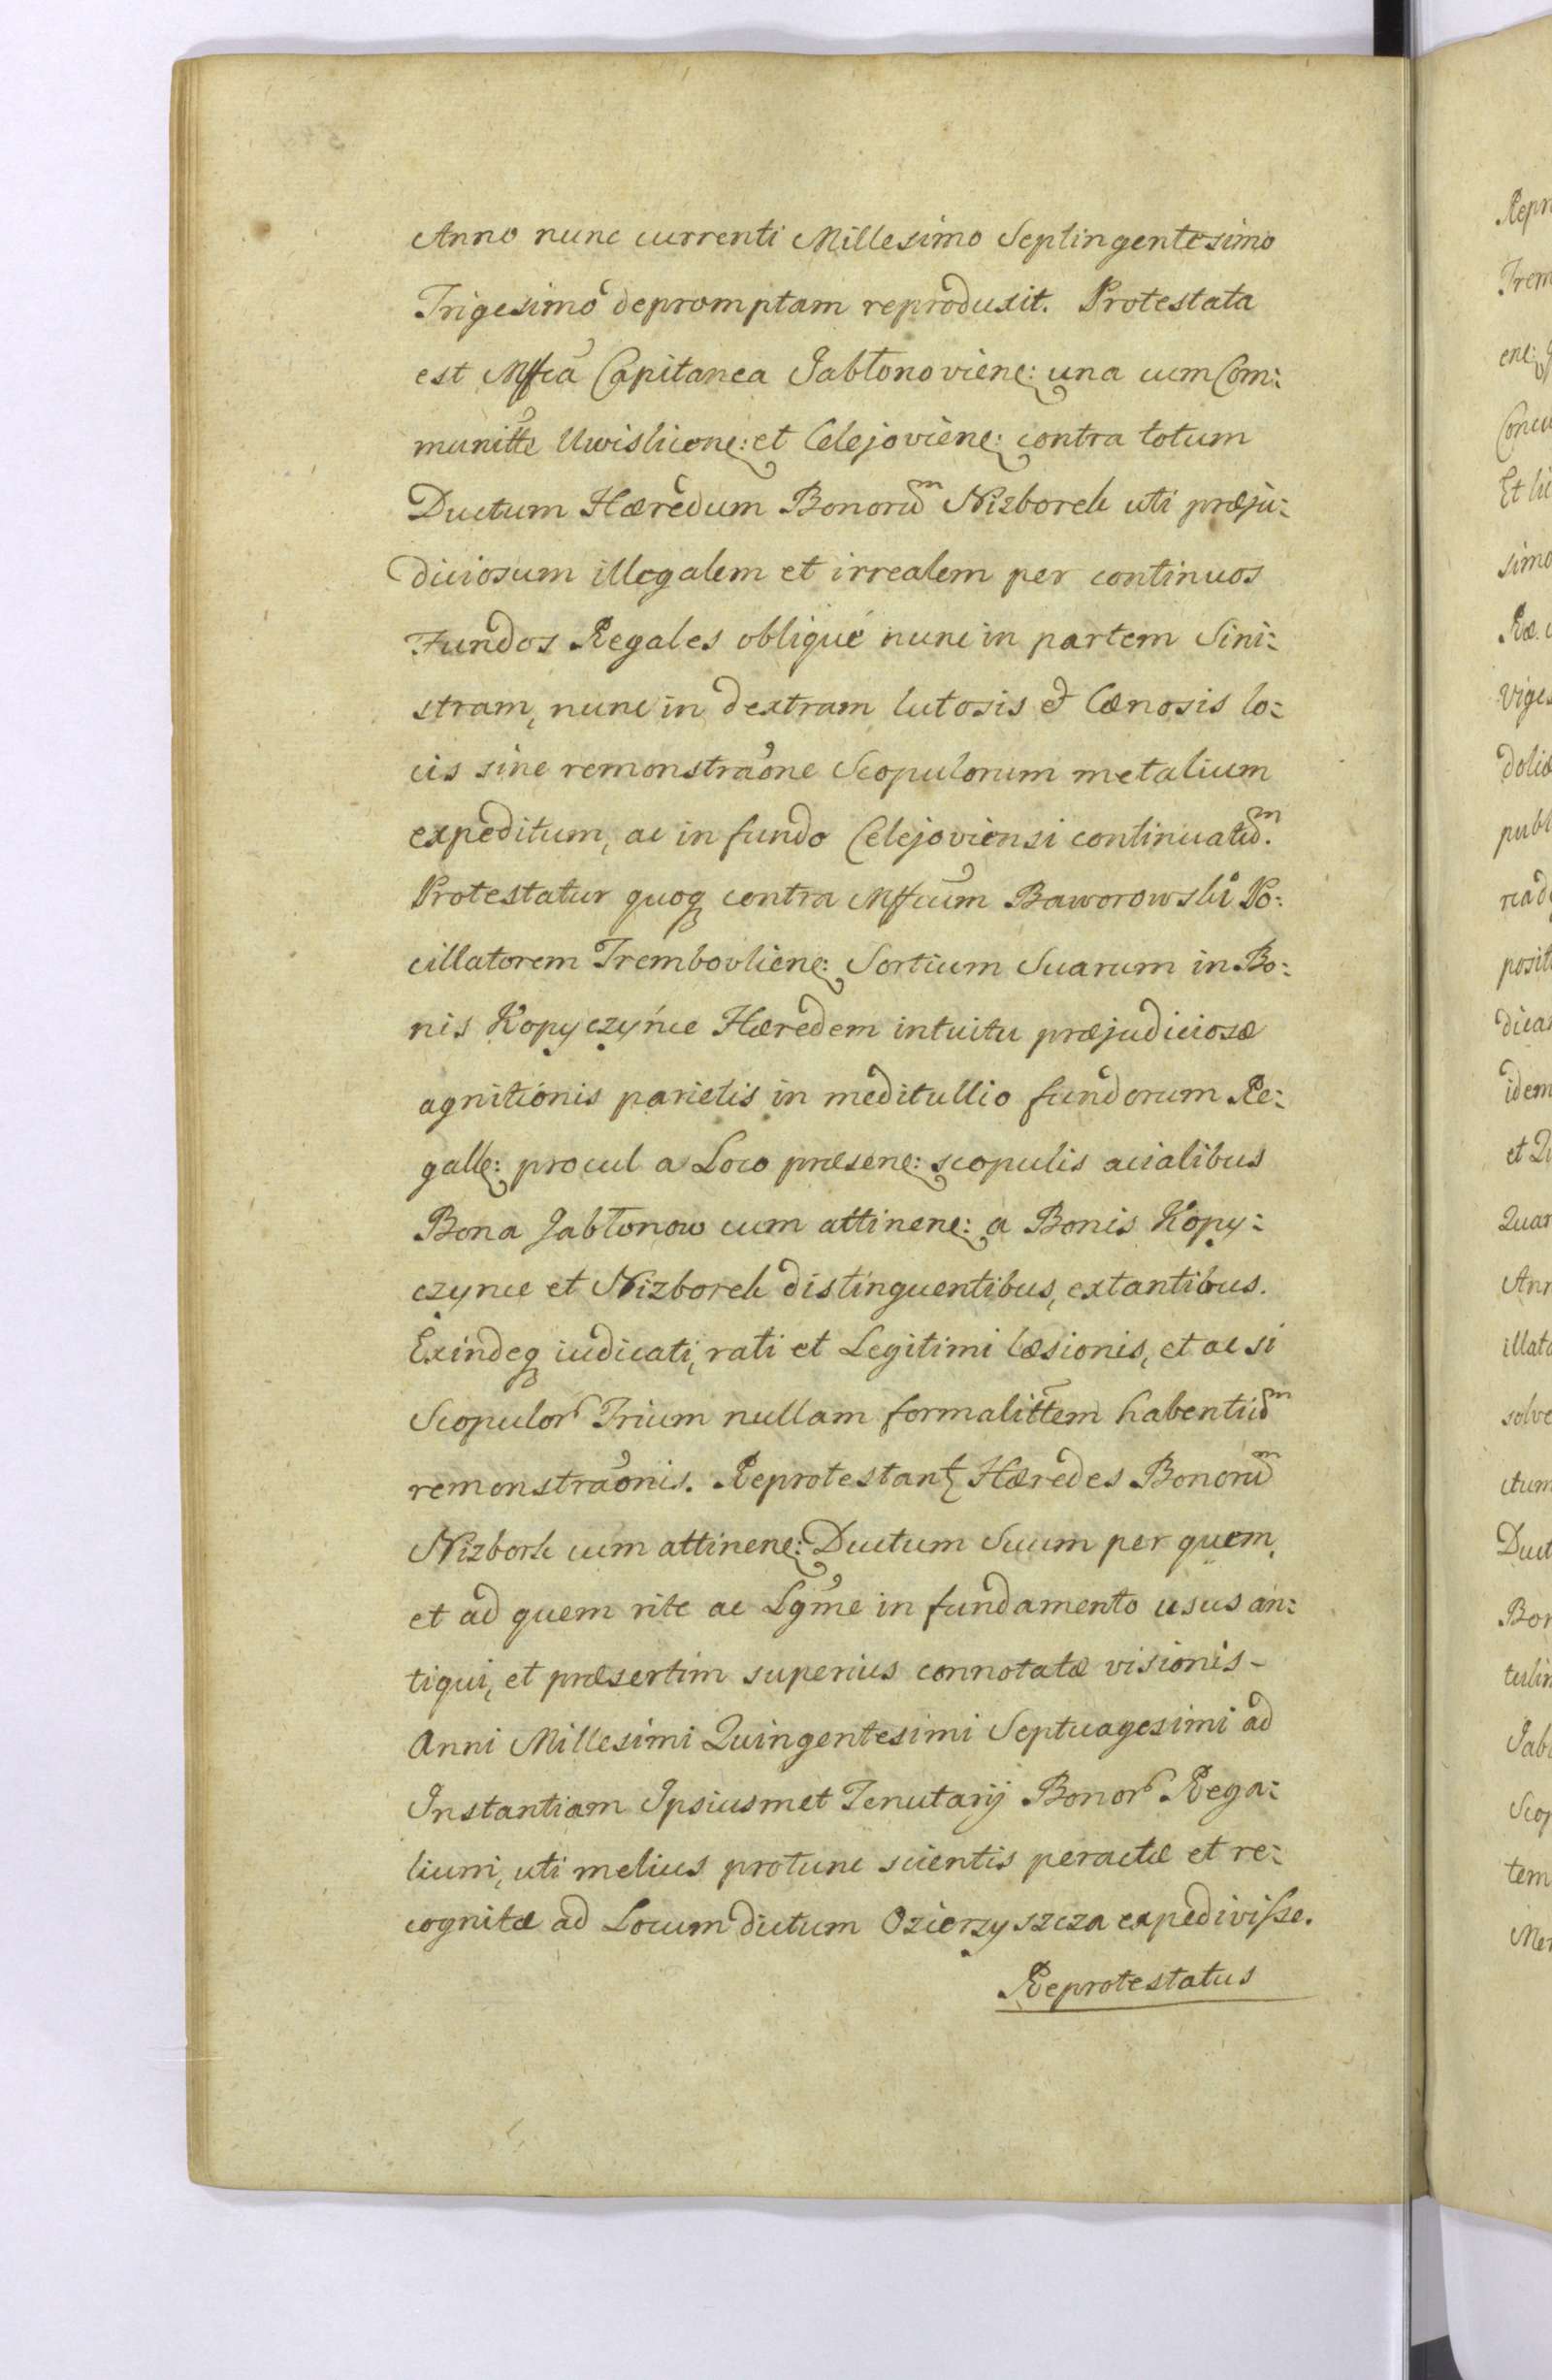 Anno nunc currenti Millesimo Septingentesimo
Trigesimo depromptam reproduxit. Protestata
est Mffca Capitanea Jabłonoviene: una cum Com:
munitte Uwislicone: et Celejoviene: contra totum
Ductum Hæredum Bonorum Nizborek uti præju:
diciosum illegalem et irrealem per continuos
Fundos Regales obliqué nunc in partem Sini:
stram, nunc in dextram lutosis et Cœnosis lo:
cis sine remonstraone Scopulorum metalium
expeditum, ac in fundo Celejoviensi continuatum.
Protestatur quoq contra Mffcum Baworowski Po:
cillatorem Trembovliene: Sortium Suarum in Bo:
nis Kopyczyńce Hæredem intuitu præjudiciosæ
agnitionis parietis in meditullio fundorum Re:
galle: procul a Loco præsene: scopulis acialibus
Bona Jabłonow cum attinene: a Bonis Kopy:
czynce et Nizborek distinguentibus, extantibus.
Exindeq iudicati, rati et Legitimi læsionis, et ac si
Scopulor Trium nullam formalittem habentium
remonstraonis. Reprotestant Hæredes Bonorum
Nizbork cum attinene: Ductum Suum per quem
et ad quem rite ac Lgme in fundamento usus an:
tiqui, et præsertim superius connotatæ visionis -
Anni Millesimi Quingentesimi Septuagesimi ad
Instantiam Ipsiusmet Tenutarij Bonor Rega:
lium, uti melius protunc scientis peractæ et re:
cognitæ ad Locum dictum Ozierzyszcza expedivisse.
Reprotestatus